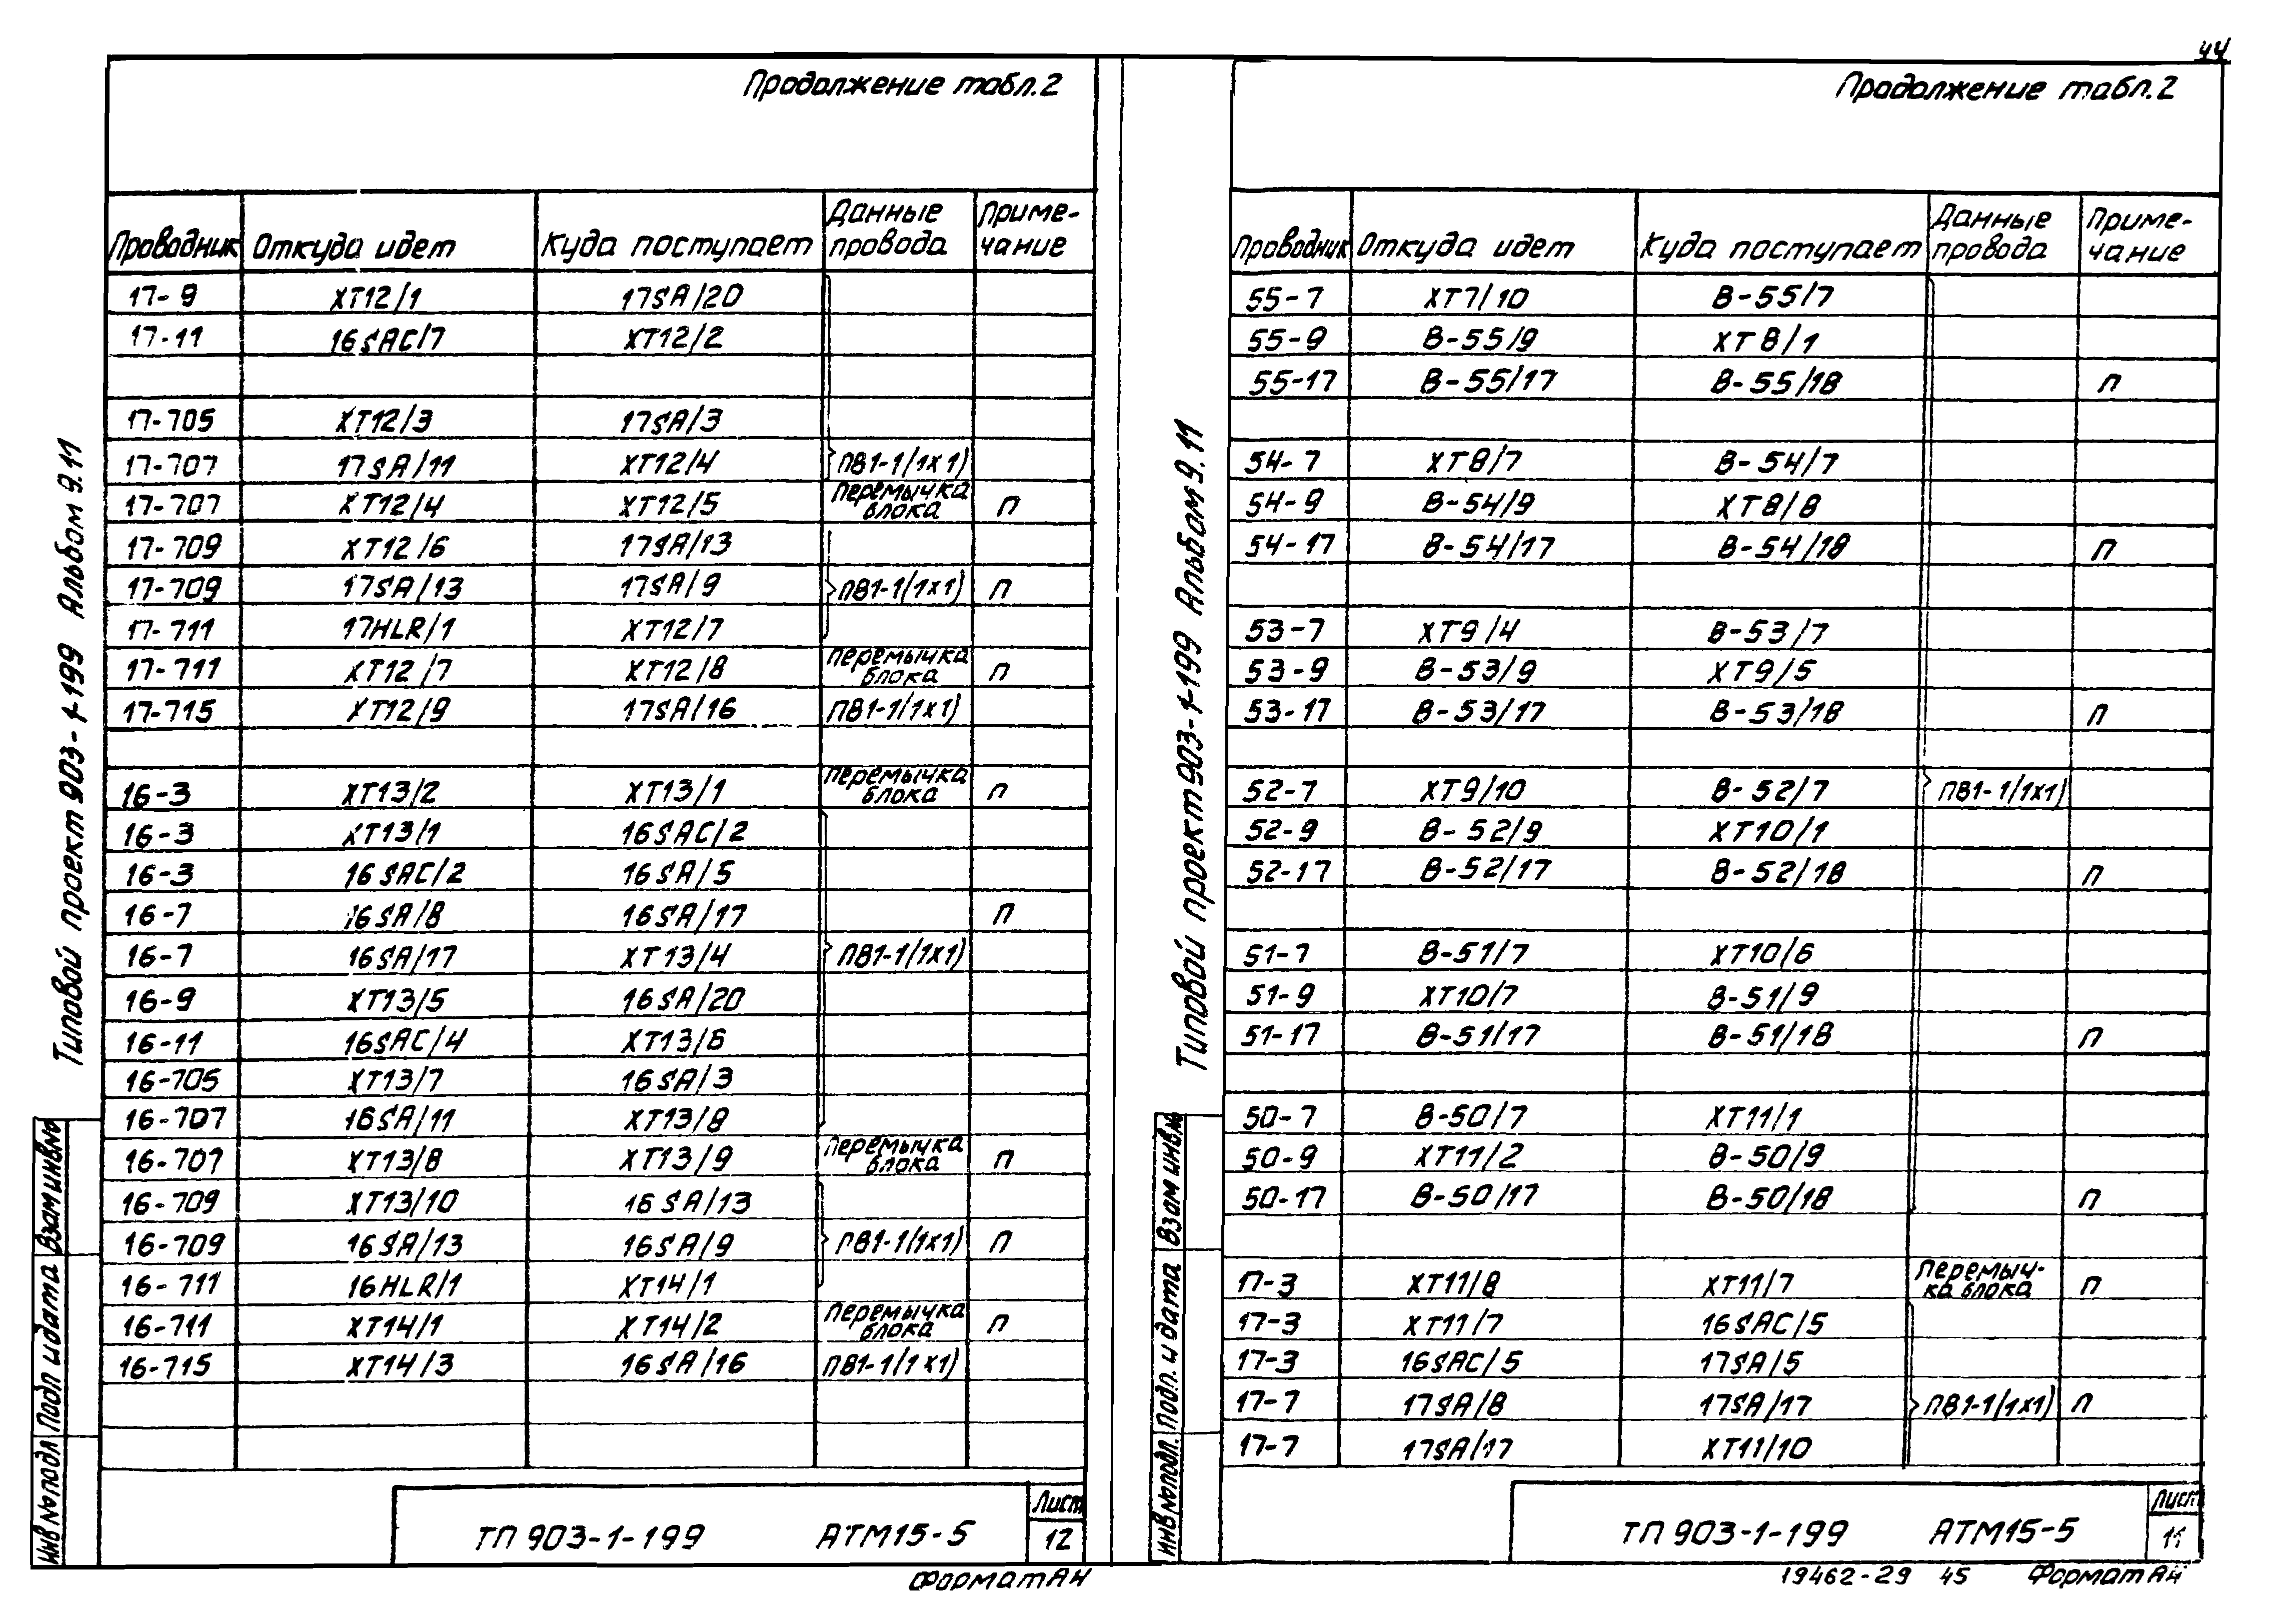 44
Продолжение табл.2
Проводник Откуда идет Куда поступает Данные провода Приме-чание
17-9 XT12/1 17SA/20
17-11 16SAC/7 XT12/2
17-705 XT12/3 17SA/3
17-707 17SA/11 XT12/4 ПВ1-1/1х1)
17-707 XT12/4 XT12/5 перемычка блока П
17-709 XT12/6 17SA/13
17-709 17SA/13 17SA/9 ПВ1-1/1х1) П
17-711 17HLR/1 XT12/7
17-711 XT12/7 XT12/8 перемычка блока П
17-715 XT12/9 17SA/16 ПВ1-1/1х1)
16-3 XT13/2 XT13/1 перемычка блока П
16-3 XT13/1 16SAC/2
16-3 16SAC/2 16SA/5
16-7 16SA/8 16SA/17 П
16-7 16SA/17 XT13/4 ПВ1-1/1х1)
16-9 XT13/5 16SA/20
16-11 16SAC/4 XT13/6
16-705 XT13/7 16SA/3
16-707 16SA/11 XT13/8
16-707 XT13/8 XT13/9 перемычка блока П
16-709 XT13/10 16SA/13
16-709 16SA/13 16SA/9 ПВ1-1/1х1) П
16-711 16HLR/1 XT14/1
16-711 XT14/1 XT14/2 перемычка блока П
16-715 XT14/3 16SA/16 ПВ1-1/1х1)
ТП 903-1-199 АТМ15-5 Лист 12
Формат А4
Типовой проект 903-1-199 Альбом 9.11
Инв №подл Подп и дата Взам инв№
Продолжение табл.2
Проводник Откуда идет Куда поступает Данные провода Приме-чание
55-7 XT7/10 В-55/7
55-9 В-55/9 XT8/1
55-17 В-55/17 В-55/18 П
54-7 XT8/7 В-54/7
54-9 В-54/9 XT8/8
54-17 В-54/17 В-54/18 П
53-7 XT9/4 В-53/7
53-9 В-53/9 XT9/5
53-17 В-53/17 В-53/18 П
52-7 XT9/10 В-52/7 ПВ1-1/1х1)
52-9 В-52/9 XT10/1
52-17 В-52/17 В-52/18 П
51-7 В-51/7 XT10/6
51-9 XT10/7 В-51/9
51-17 В-51/17 В-51/18 П
50-7 В-50/7 XT11/1
50-9 XT11/2 В-50/9
50-17 В-50/17 В-50/18 П
17-3 XT11/8 XT11/7 перемыч-ка блока П
17-3 XT11/7 16SAC/5
17-3 16SAC/5 17SA/5
17-7 17SA/8 17SA/17 ПВ1-1/1х1) П
17-7 17SA/17 XT11/10
ТП 903-1-199 АТМ15-5 Лист 11
19462-29 45 Формат А4
Типовой проект 903-1-199 Альбом 9.11
Инв №подл. Подп. и дата Взам инв№